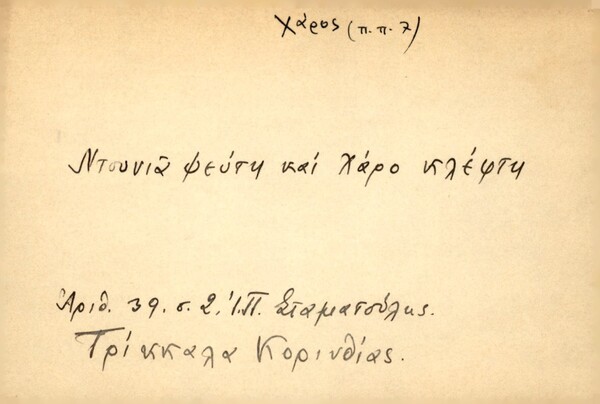 Χάρος (π.π. 7)
Ντουνιᾶ ψεύτη καί Χάρο κλέφτη
Ἀριθ. 39. σ. 2. Ἰ.Π. Σταματούλης.
Τρίκκαλα Κορινθίας.